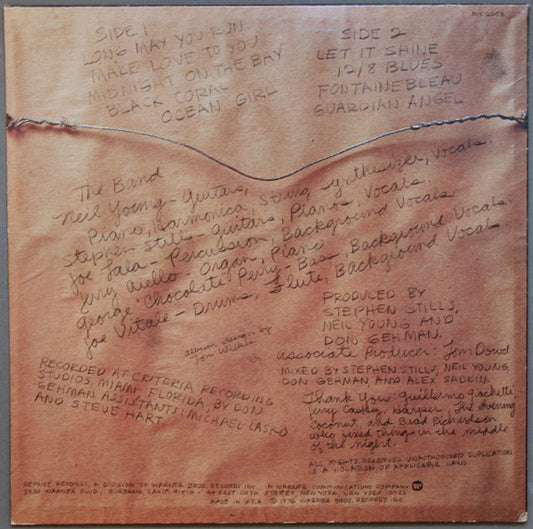 SIDE 1
LONG MAY YOU RUN
MAKE LOVE TO YOU
MIDNIGHT ON THE BAY
BLACK CORAL
OCEAN GIRL
SIDE 2
LET IT SHINE
12/8 BLUES
FONTAINEBLEAU
GUARDIAN ANGEL
The Band
Neil Young - Guitars,
Piano, Harmonica, String Synthesizer, Vocals.
Stephen Stills - Guitars, Piano, Vocals.
Joe Lala - Percussion, Background Vocals.
Jerry Aiello - Organ, Piano
George "Chocolate" Perry - Bass, Background Vocals.
Joe Vitale - Drums, Flute, Background Vocals.
album design by
Tom Wilkes
PRODUCED BY
STEPHEN STILLS,
NEIL YOUNG AND
DON GEHMAN.
associate Producer: Tom Dowd
MIXED BY STEPHEN STILLS, NEIL YOUNG,
DON GEHMAN AND ALEX SADKIN.
RECORDED AT CRITERIA RECORDING
STUDIOS, MIAMI FLORIDA, BY DON
GEHMAN. ASSISTANTS: MICHAEL LASKO
AND STEVE HART
Thank You: Guillermo Giachetti,
Jerry Caskey, Harper, The Evening
Coconut and Brad Richardson
who fixed things in the middle
of the night.
ALL RIGHTS RESERVED UNAUTHORIZED DUPLICATION
IS A VIOLATION OF APPLICABLE LAWS
REPRISE RECORDS, A DIVISION OF WARNER BROS. RECORDS INC., A WARNER COMMUNICATIONS COMPANY
3300 WARNER BLVD., BURBANK, CALIF. 91510 · 44 EAST 50TH STREET, NEW YORK, NEW YORK 10022
MADE IN U.S.A. © 1976 WARNER BROS. RECORDS INC.